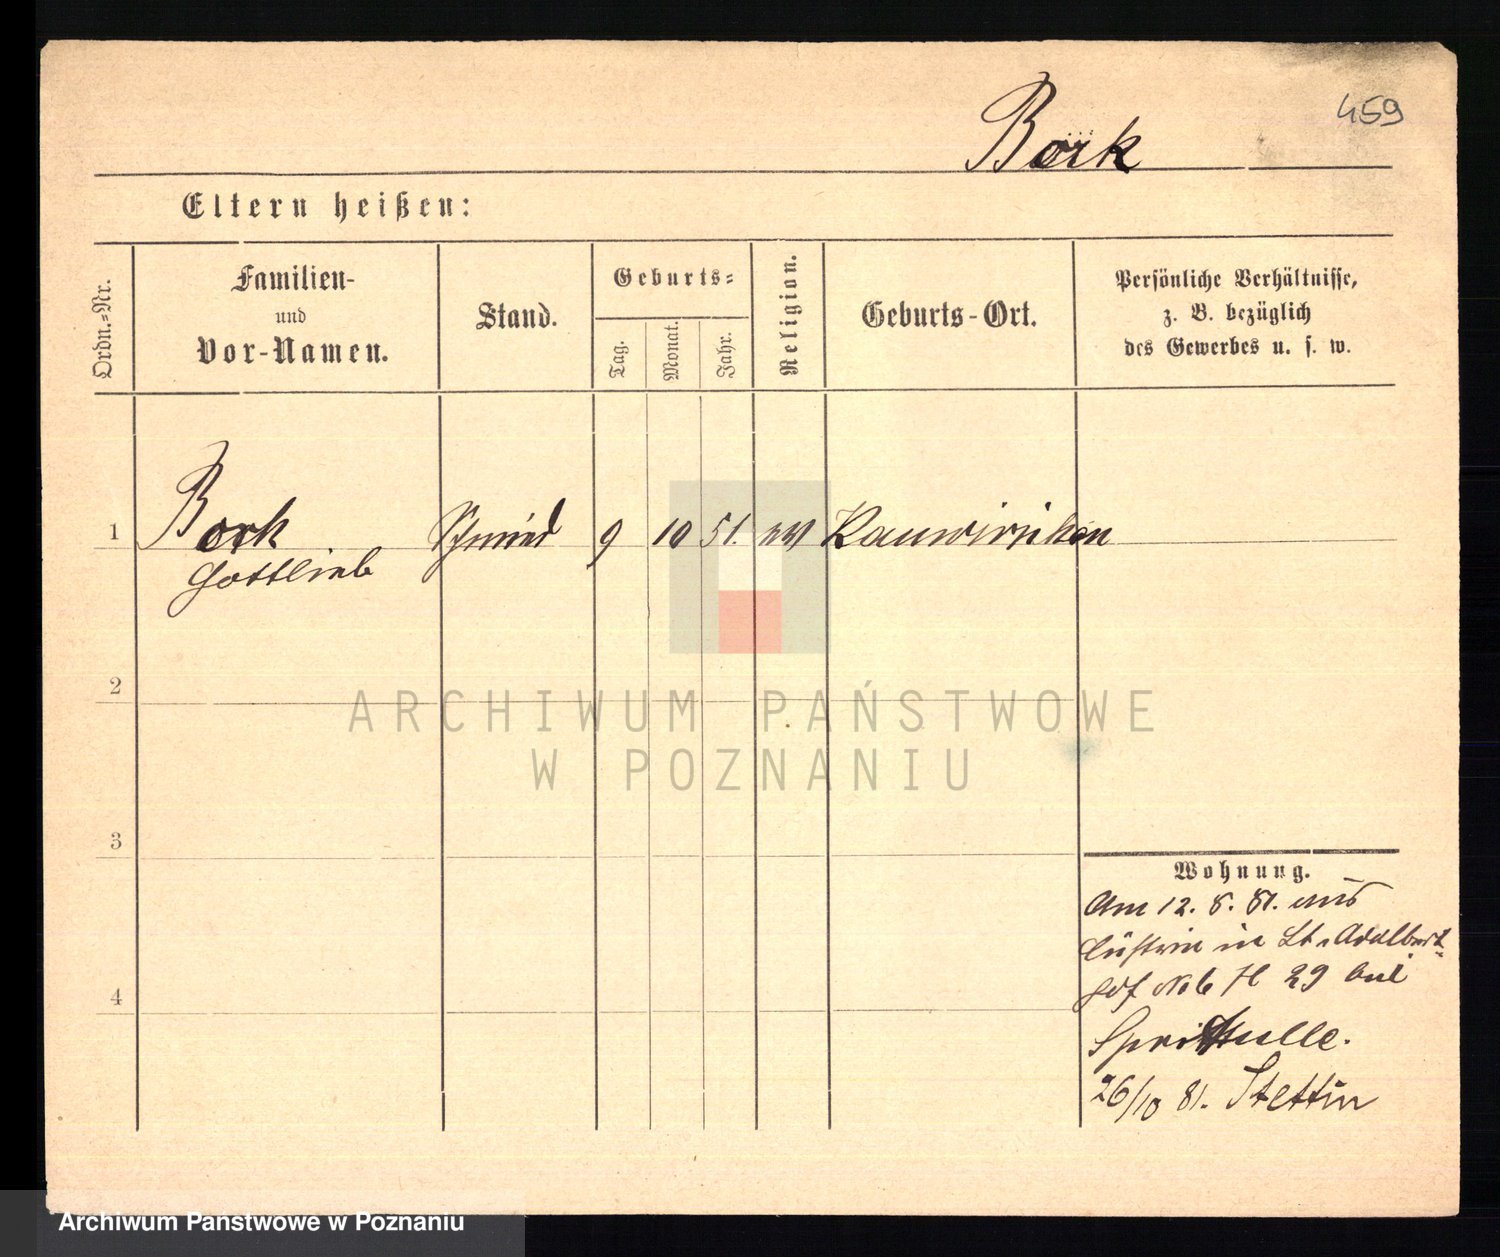 459
Bork
Eltern heißen:
Ordn.-Nr.
Familien-
und
Vor-Namen.
Stand.
Geburts-
Tag.
Monat.
Jahr.
Religion.
Geburts-Ort.
Persönliche Verhältnisse,
z. B. bezüglich
des Gewerbes u. s. w.
1
Bork
Gottlieb
Schmied
9
10
51.
ev
2
3
4
ARCHIWUM PAŃSTWOWE
W POZNANIU
Wohnung.
Am 12. 8. 81. aus
Cüstrin in St. Adalbert-
No 6 29 bei
26/10 81. Stettin
Archiwum Państwowe w Poznaniu